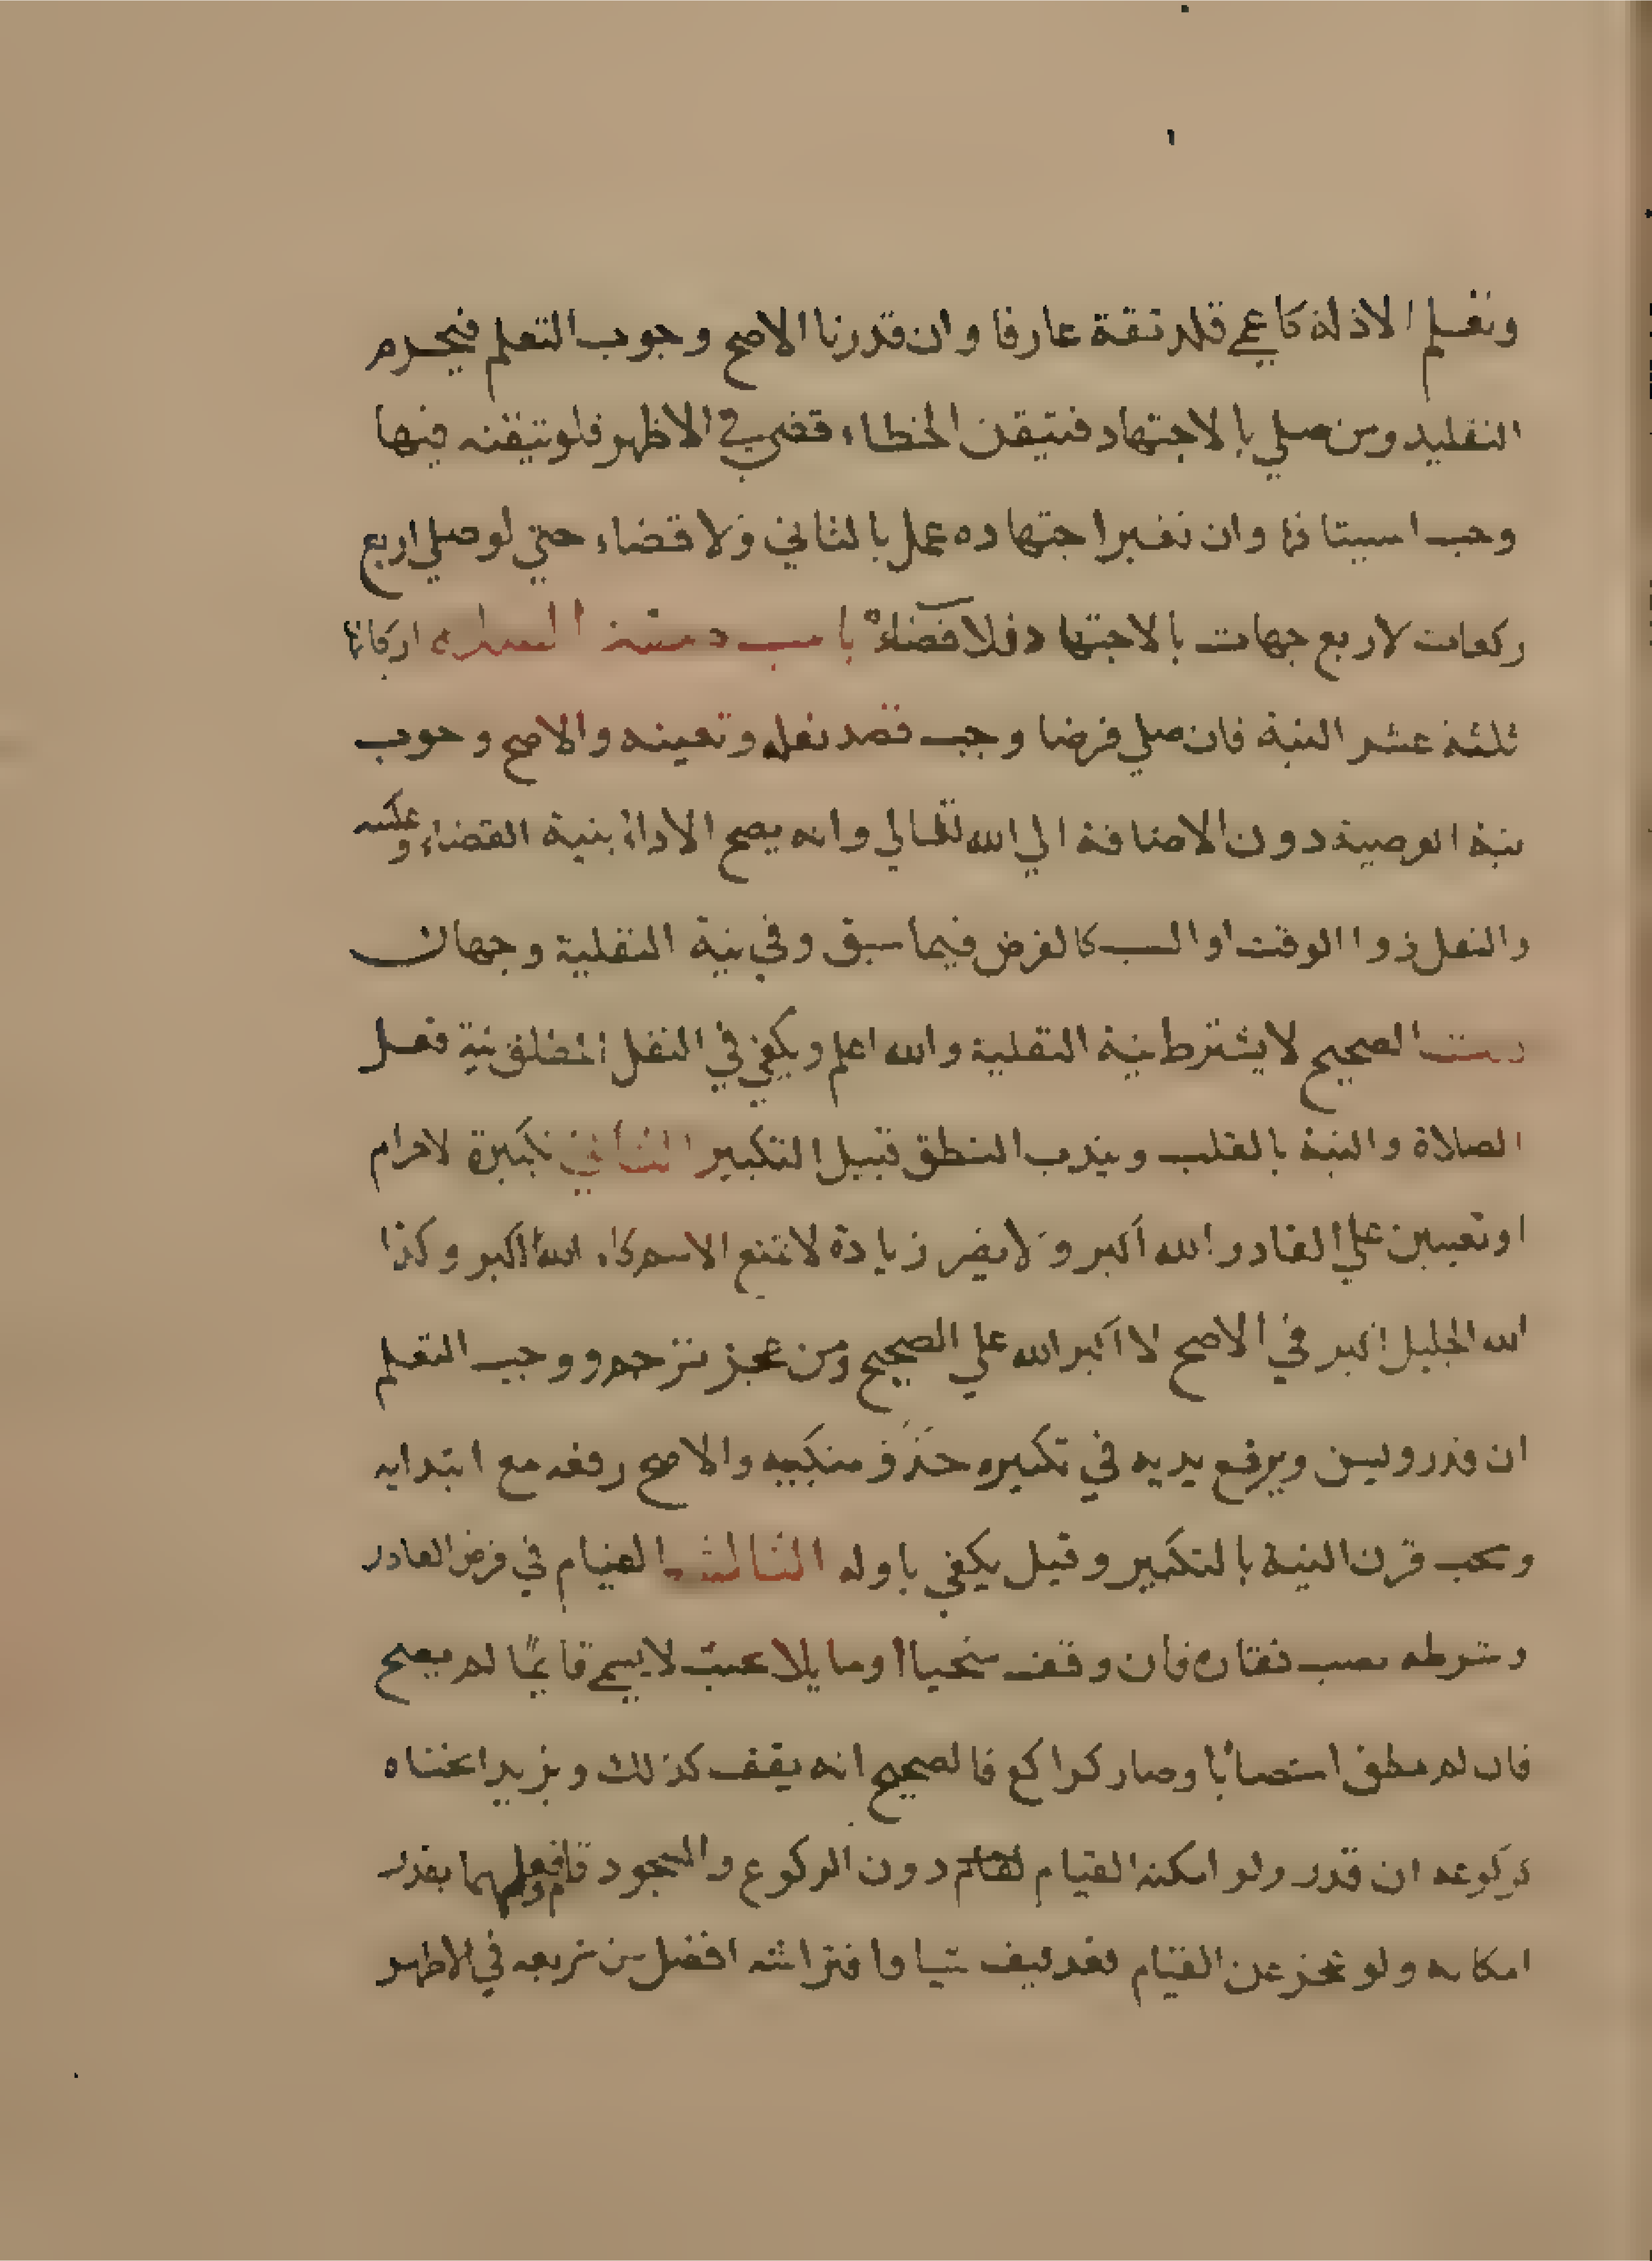 وتعلم الادلة كاعمي قلد ثقة عارفا وان قدرنا الاصح وجوب التعلم فيحرم
التقليد ومن صلي بالاجتهاد فتيقن الخطاء قضي في الاظهر فلو تيقنه فيها
وجب استينافها وان تغير اجتهاده عمل بالثاني ولا قضاء حتي لو صلي اربع
ركعات لاربع جهات بالاجتهاد فلا قضاء باب صفة الصلاة اركانها
ثلثة عشر النية فان صلي فرضا وجب قصد نفله وتعينه والاصح وجوب
نية الفرضية دون الاضافة الي الله تعالي وانه يصح الاداء بنية القضاء وعكسه
والنفل ذوا الوقت او السبب كالفرض فيما سبق وفي نية النفلية وجهان
قلت الصحيح لا يشترط نية النفلية والله اعلم ويكفي في النفل المطلق نية فعل
الصلاة والنية بالقلب ويندب النطق قبيل التكبير الثاني تكبيرة لاحرام
اوتعيين علي القادر الله اكبر ولا يضر زيادة لا تمنع الاسم كا الله اكبر وكذا
الله الجليل اكبر في الاصح لا اكبر الله علي الصحيح ومن عجز ترجم ووجب التعلم
ان قدر ويسن ويرفع يديه في تكبيره حذو منكبيه والاصح رفعه مع ابتدايه
ويجب قرن النية بالتكبير وقيل يكفي باوله الثالث القيام في فرض القادر
وشرطه نصب فقاره فان وقف منحنيا اومايلا بحيث لا يسمي قايما لم يصح
فان لم يطق انتصابا وصار كراكع فالصحيح انه يقف كذلك ويزيد انحناه
لركوعه ان قدر ولو امكنه القيام دون الركوع والسجود قام وفعلهما بقدر
امكانه ولو عجز عن القيام قعد كيف شيا وافتراشه افضل من تربعه في الاظهر